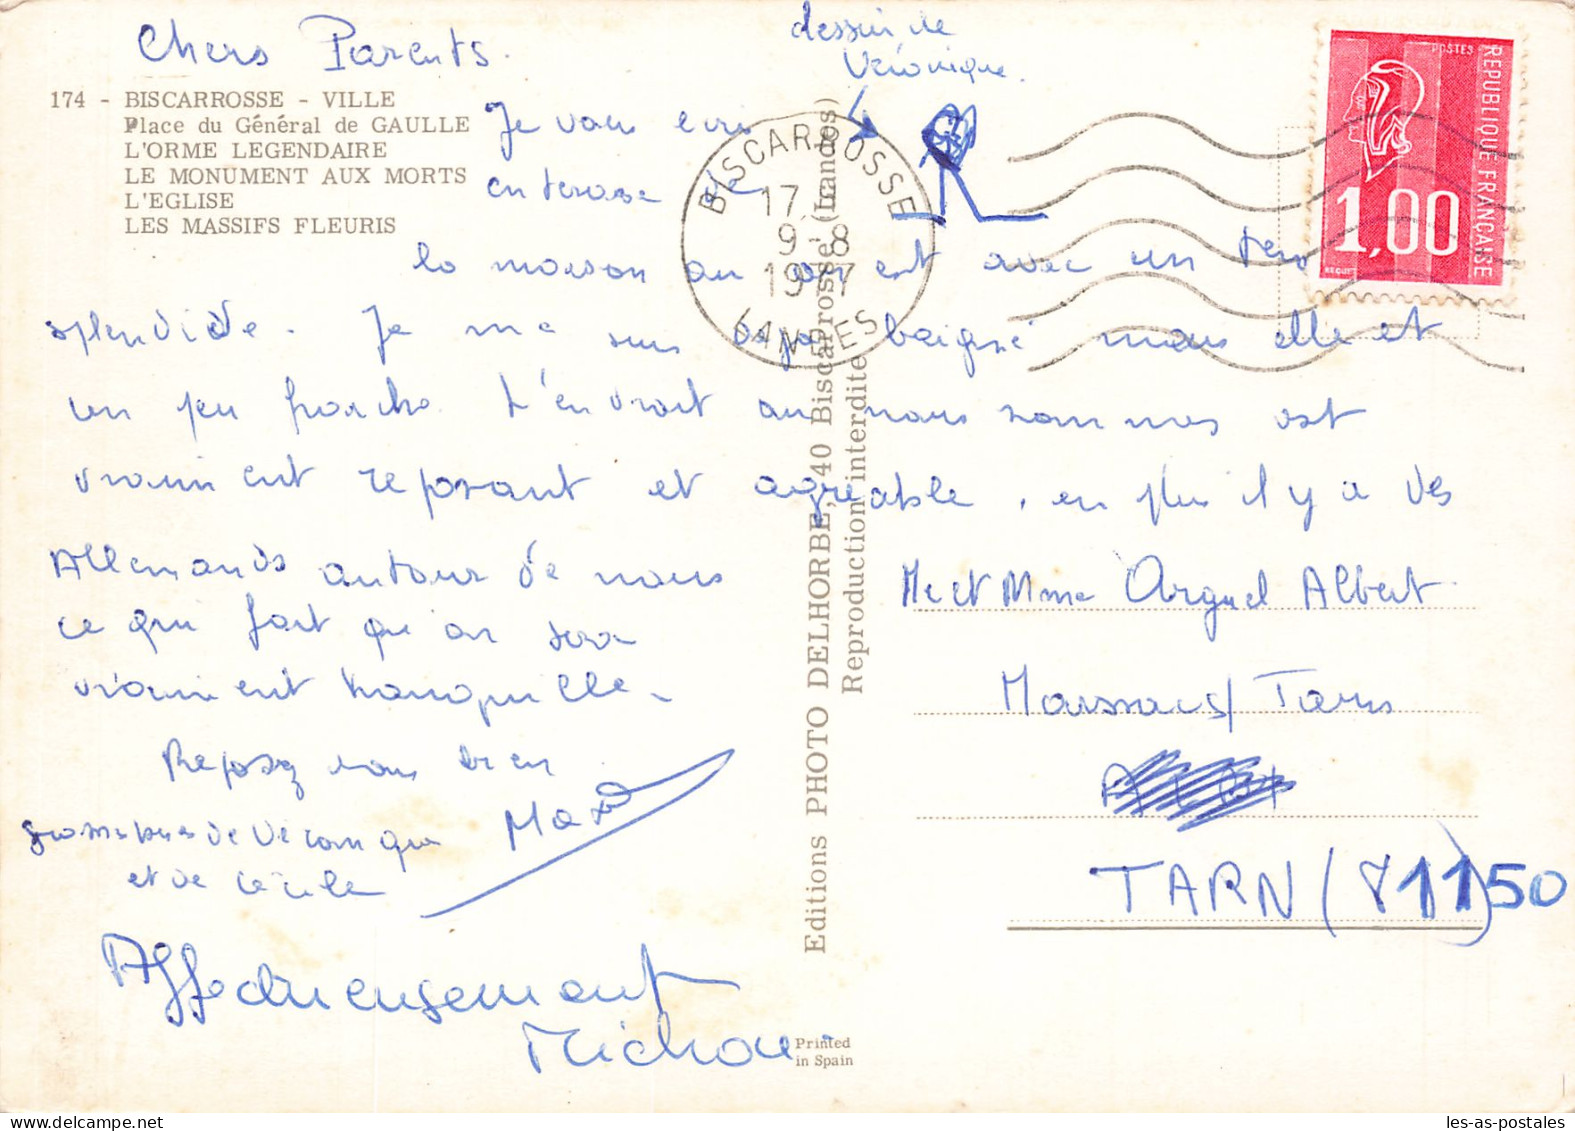 Chers Parents.
dessin de
Véronique.
174 - BISCARROSSE - VILLE
Place du Général de GAULLE
L'ORME LEGENDAIRE
LE MONUMENT AUX MORTS
L'EGLISE
LES MASSIFS FLEURIS
Je vous écris
en terasse de
la maison au on est avec un tems
splendide. Je me suis baigné mais elle et
un peu froiche. L'endroit au nous sommes est
vraiment reposant et agréable, en plus il y a des
Allemands autour de nous
ce qui fait qu'on sera
vraiment tranquille.
Reposez vous bien
Max
grosses bises de Véronique
et de Cécile
Affectueusement
Michou
BISCARROSSE
17
9-8
1977
LANDES
POSTES
REPUBLIQUE FRANÇAISE
1,00
BEQUET
Me et Mme Arguel Albert
Marssac s/ Tarn
TARN (81150)
Editions PHOTO DELHORBE, 40 Biscarrosse (Landes)
Reproduction interdite
Printed
in Spain
les-as-postales